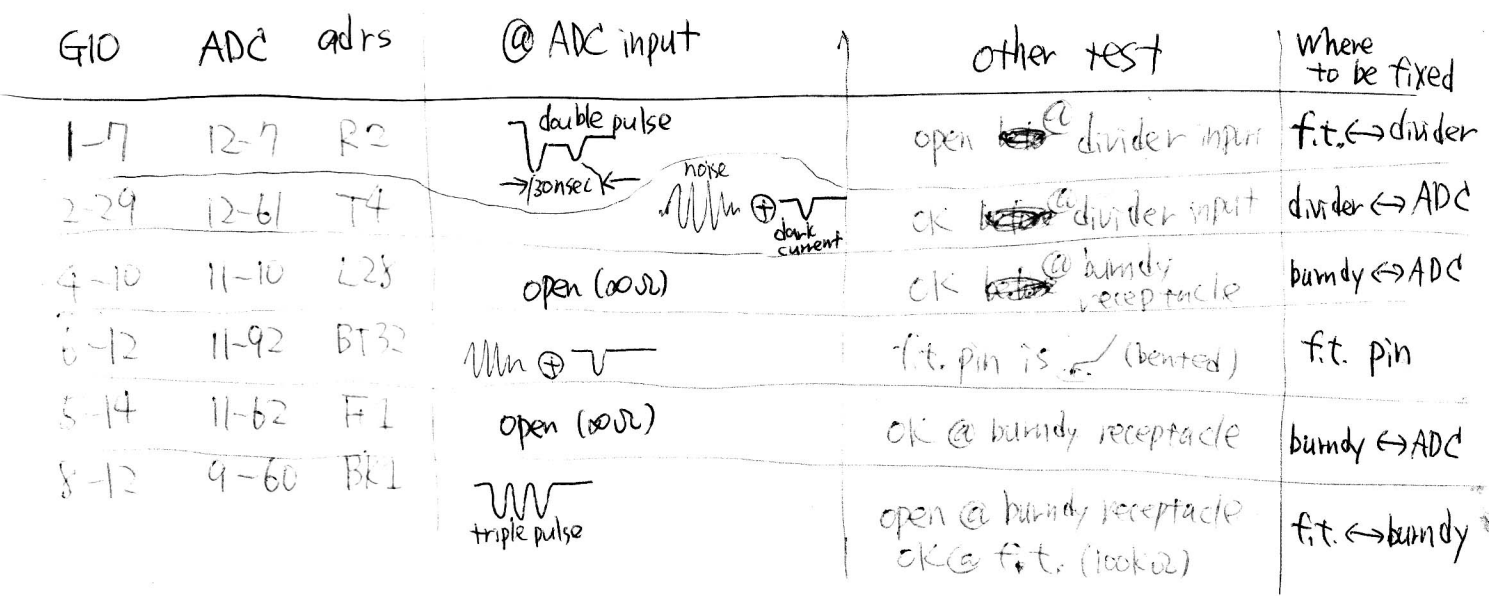 GIO ADC adrs @ ADC input other test Where to be fixed
1-7 12-7 R2 double pulse 130nsec open @ divider input f.t.↔divider
2-29 12-61 T4 noise ⊕ dark current OK @ divider input divider↔ADC
4-10 11-10 L28 open (∞Ω) OK @ burndy receptacle burndy↔ADC
6-12 11-92 BT32 ⊕ f.t. pin is (bented) f.t. pin
11-62 F1 open (∞Ω) OK @ burndy receptacle burndy↔ADC
8-12 9-60 BK1 triple pulse open @ burndy receptacle f.t.↔burndy
OK@ f.t. (100kΩ)